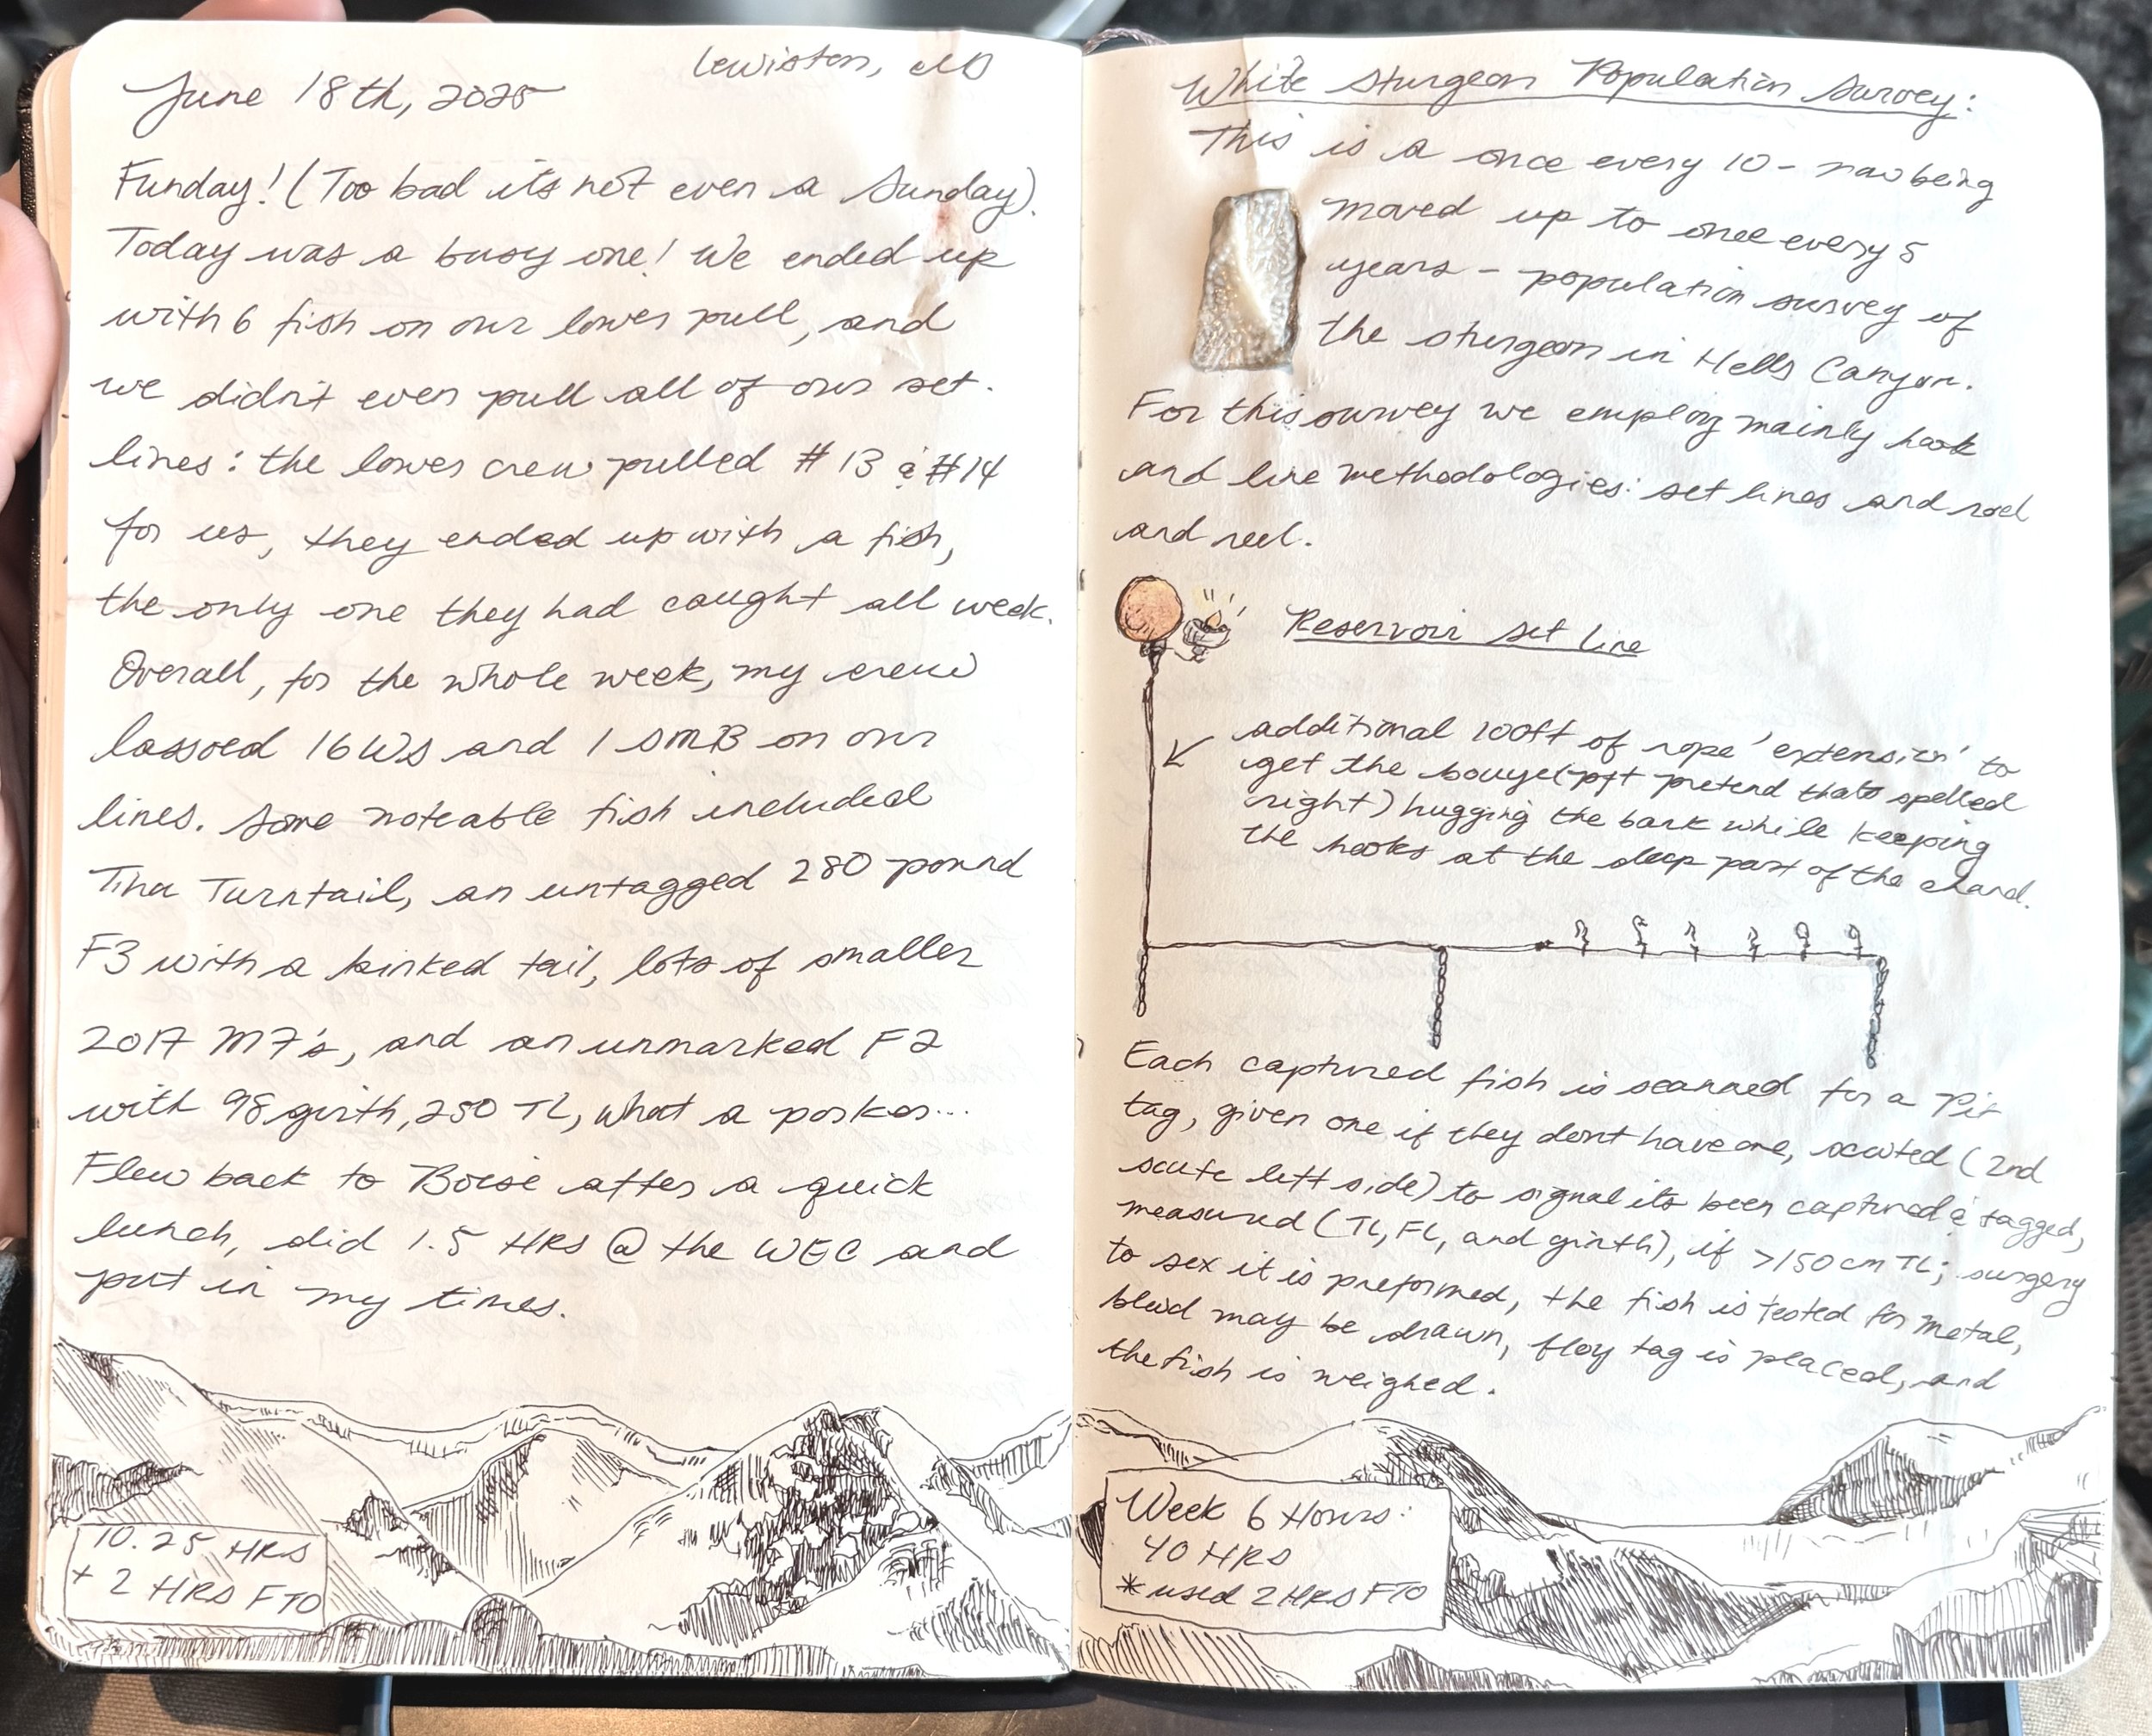 Lewiston, ID
June 18th, 2025
Funday! (Too bad its not even a Sunday).
Today was a busy one! We ended up
with 6 fish on our lower pull, and
we didn't even pull all of our set.
lines: the lower crew pulled #13 & #14
for us, they ended up with a fish,
the only one they had caught all week.
Overall, for the whole week, my crew
lassoed 16 WS and 1 SMB on our
lines. Some noteable fish included
Tina Turntail, an untagged 280 pound
F3 with a kinked tail, lots of smaller
2017 M7's, and an unmarked F2
with 98 girth, 250 TL, what a porker...
Flew back to Boise after a quick
lunch, did 1.5 HRS @ the WEC and
put in my times.
10.25 HRS
+ 2 HRS FTO
White Sturgeon Population Survey:
This is a once every 10 - now being
moved up to once every 5
years - population survey of
the sturgeon in Hells Canyon.
For this survey we employ mainly hook
and line methodologies: set lines and rod
and reel.
Reservoir Set Line
additional 100ft of rope 'extension' to
get the bouye (pft pretend thats spelled
right) hugging the bank while keeping
the hooks at the deep part of the
Each captured fish is scanned for a Pit
tag, given one if they dont have one, scuted (2nd
scute left side) to signal its been captured & tagged,
measured (TL, FL, and girth), if >150cm TL; surgery
to sex it is preformed, the fish is tested for metal,
blood may be drawn, floy tag is placed, and
the fish is weighed.
Week 6 Hours:
40 HRS
* used 2 HRS FTO